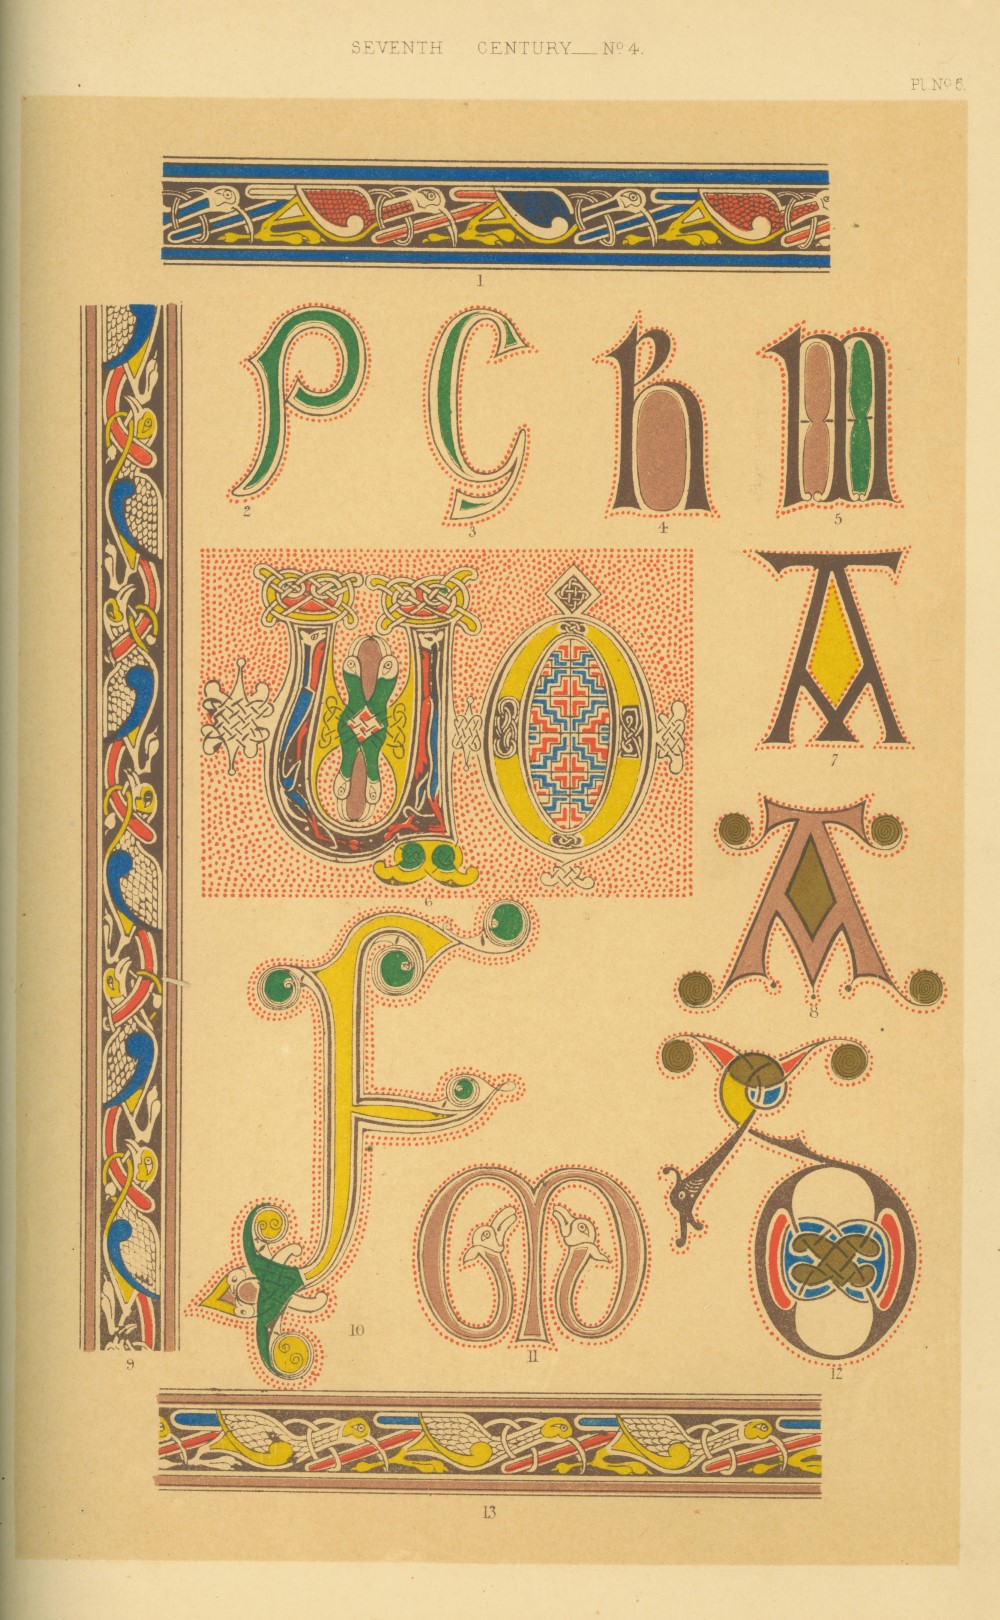 SEVENTH CENTURY__Nº 4.
Pl. Nº 6.
1
P
C
R
m
2
3
4
5
U O
A
6
7
A
8
F
9
10
m
11
12
13